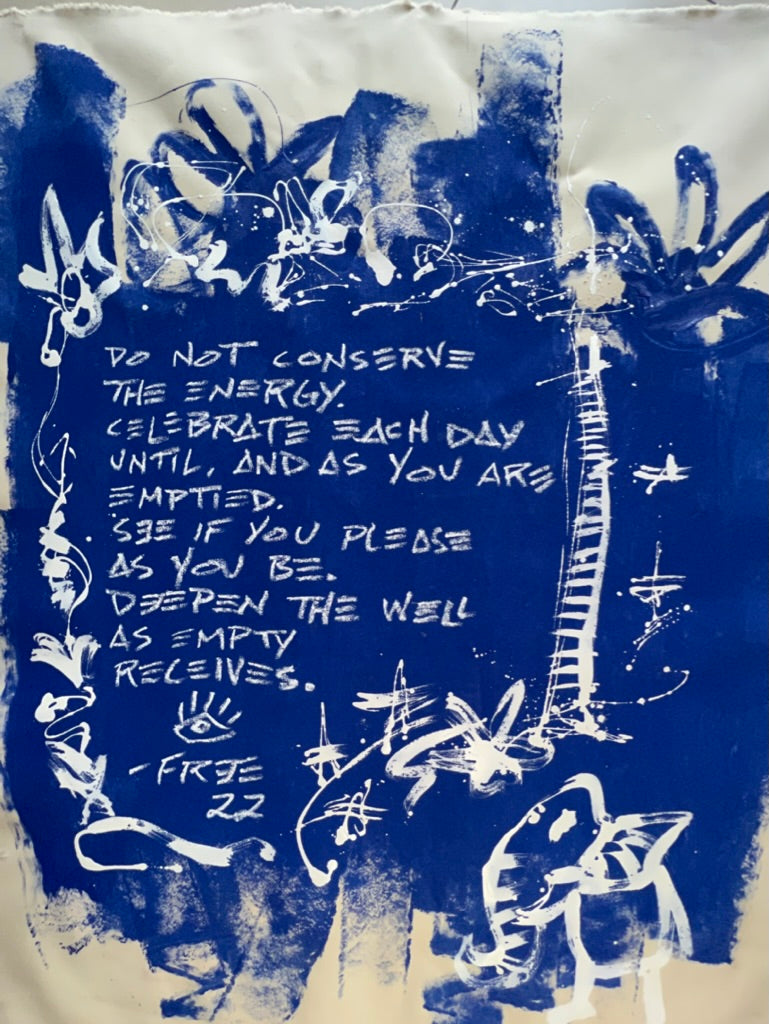 DO NOT CONSERVE
THE ENERGY.
CELEBRATE EACH DAY
UNTIL, AND AS YOU ARE
EMPTIED.
SEE IF YOU PLEASE
AS YOU BE.
DEEPEN THE WELL
AS EMPTY
RECEIVES.
-FREE
22